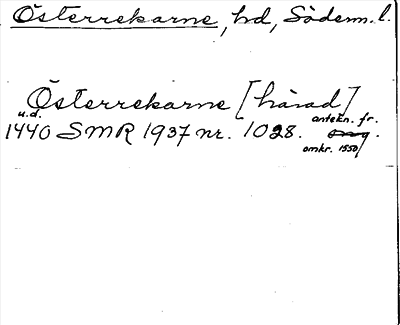 Österrekarne, hd, Söderm. l.
Österrekarne [härad]
u.d.
1440 SMR 1937 nr. 1028. antekn. fr.
omkr. 1550/